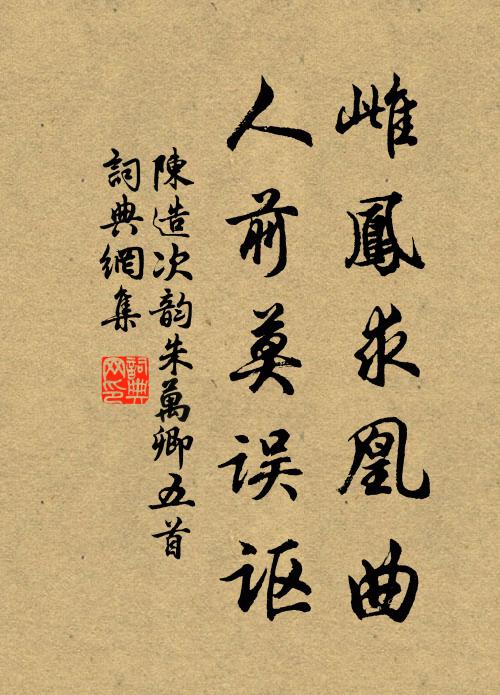 雌鳳求凰曲
人前莫误讴
陳造次韵朱萬卿五首
詞典網集
詞典
网印